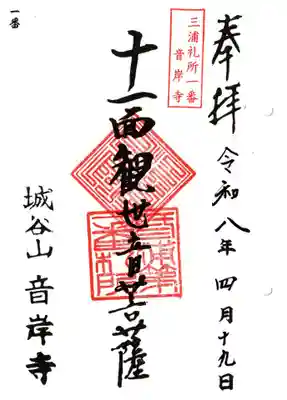 奉拝
令和八年四月十九日
三浦札所一番
音岸寺
十一面観世音菩薩
城谷山音岸寺
一番